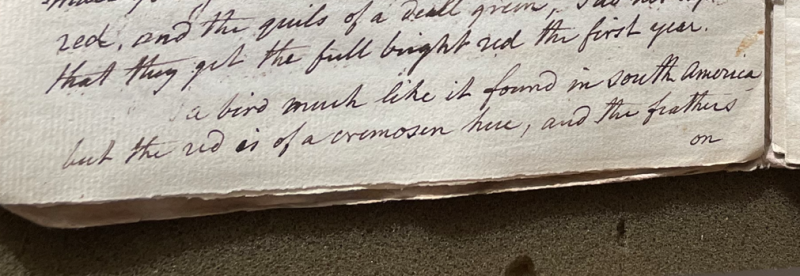 red, and the quils of a deall green,
that they get the full bright red the first year.
a bird much like it found in south America
but the red is of a cremosen hue, and the feathers
on